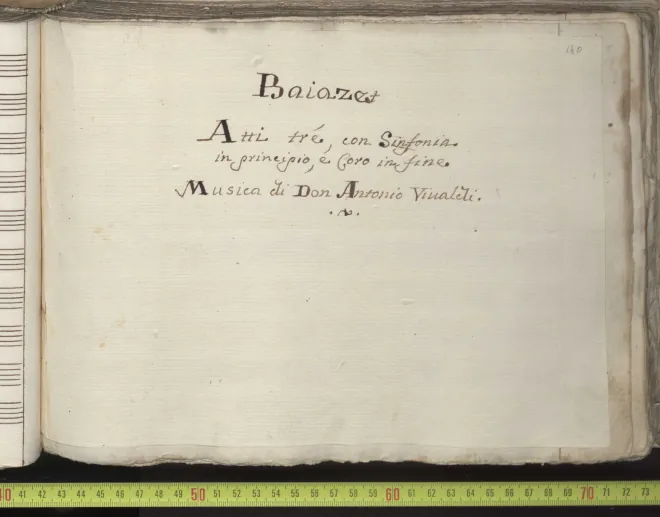 180
Baiazet
Atti tré, con Sinfonia
in principio, é Coro in fine
Musica di Don Antonio Viualdi.
40 41 42 43 44 45 46 47 48 49 50 51 52 53 54 55 56 57 58 59 60 61 62 63 64 65 66 67 68 69 70 71 72 73